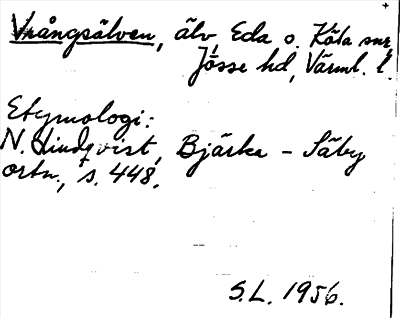 Vrångsälven, älv, Eda o. Köla snr,
Jösse hd, Värml. l.
Etymologi:
N. Lindqvist, Bjärka - Säby
ortn., s. 448.
S.L. 1956.